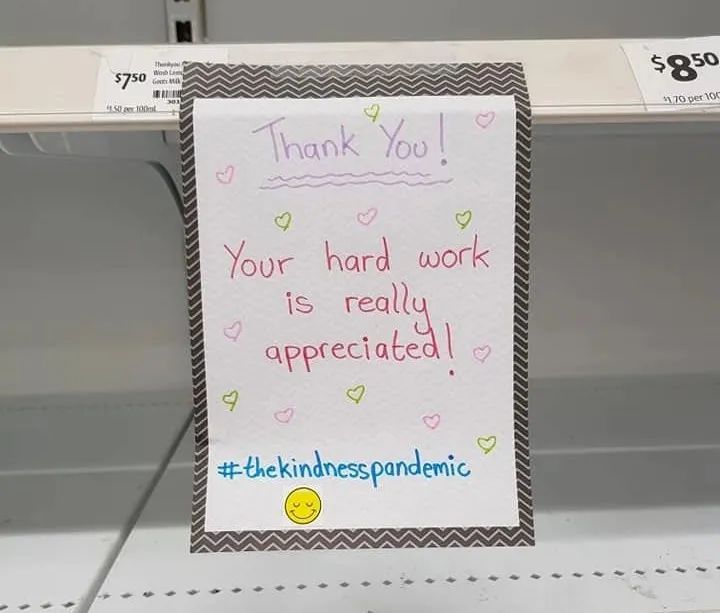 $7.50
Thankyou
Goats Milk
$1.50 per 100mL
$8.50
$1.70 per 100
Thank You!
Your hard work
is really
appreciated!
#thekindnesspandemic